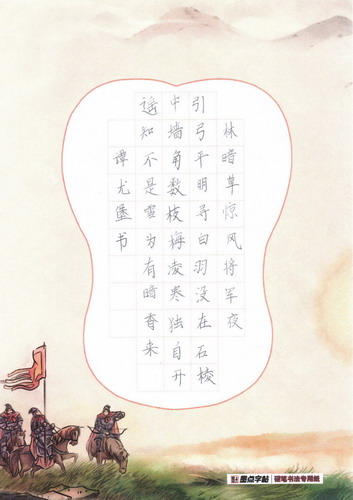 林暗草惊风将军夜
引弓平明寻白羽没在石棱
中墙角数枝梅凌寒独自开
遥知不是雪为有暗香来
谭尤堡书
墨点字帖 硬笔书法专用纸